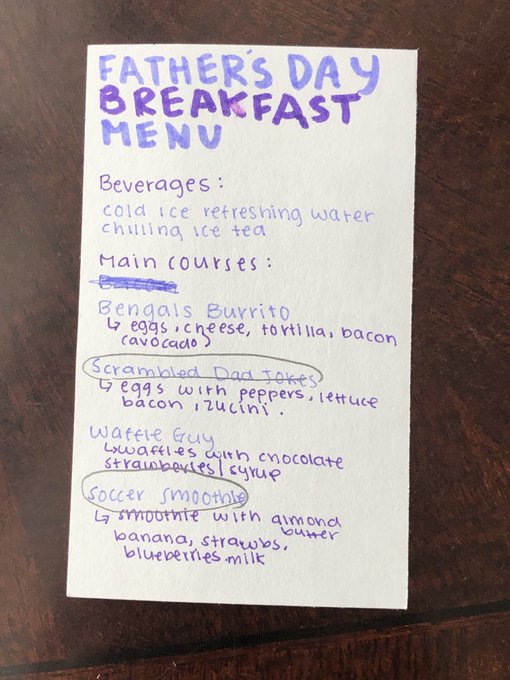 FATHER'S DAY
BREAKFAST
MENU
Beverages:
cold ice refreshing water
chilling ice tea
Main courses:
Bengals Burrito
↳ eggs, cheese, tortilla, bacon
(avocado)
Scrambled Dad Jokes
↳ eggs with peppers, lettuce
bacon, zucini.
Waffle Guy
↳ waffles with chocolate
strawberries/syrup
Soccer Smoothie
↳ smoothie with almond
butter
banana, strawbs,
blueberries.milk